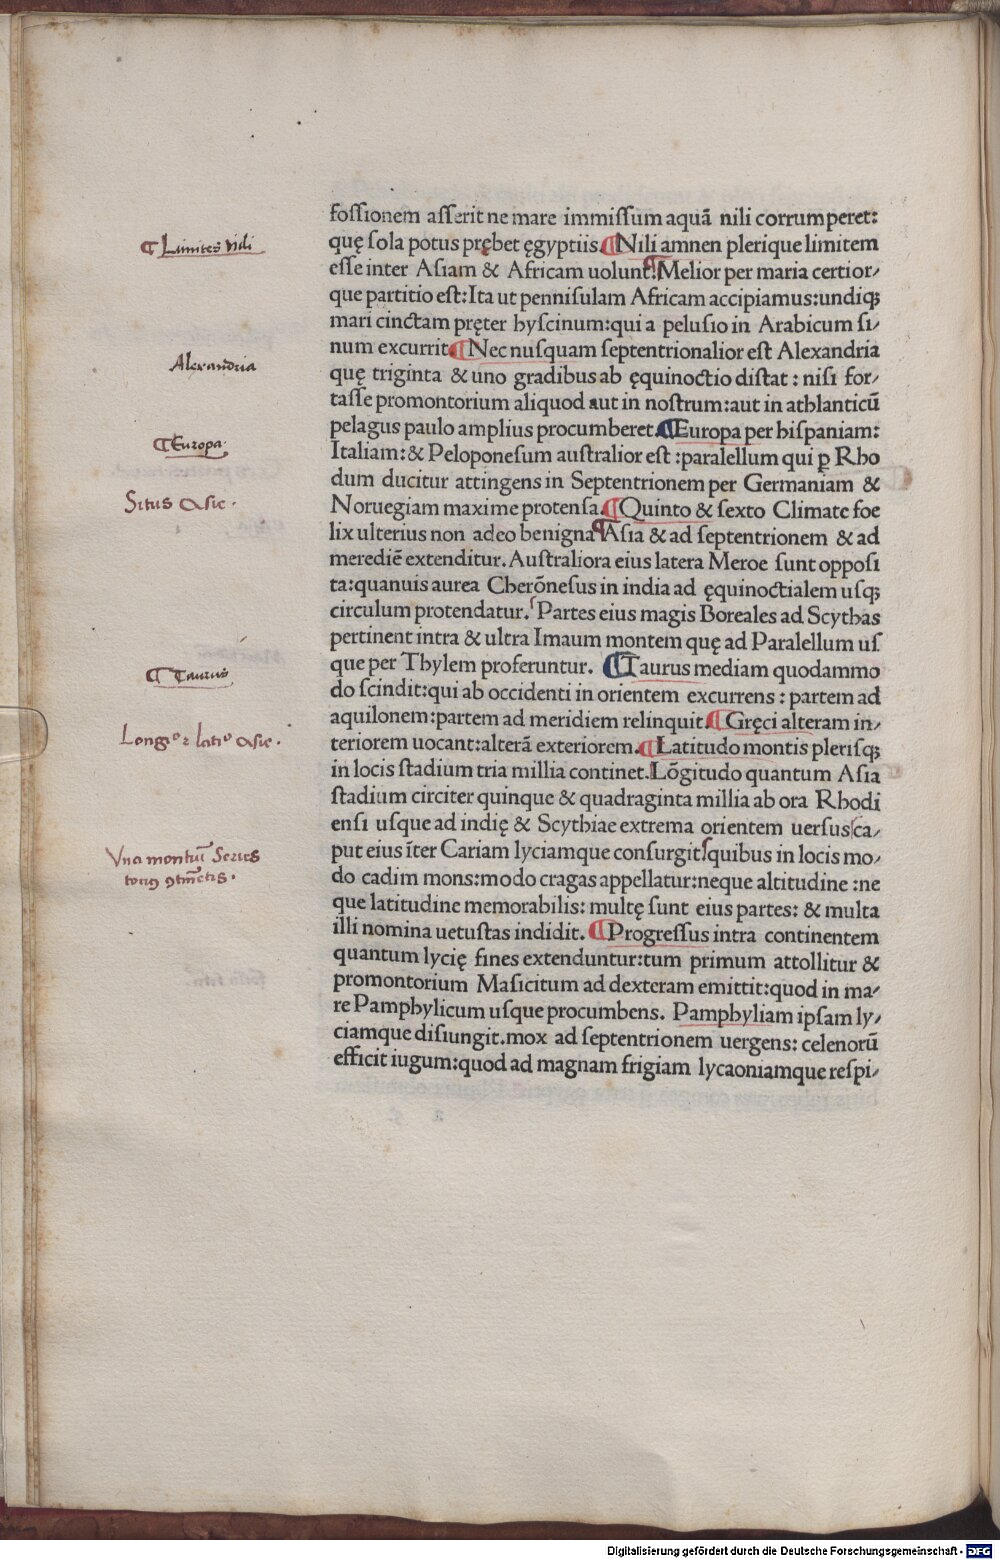 foſſionem aſſerit ne mare immiſſum aquā nili corrumperet:
quę ſola potus prębet ęgyptiis. ¶ Nili amnen plerique limitem
eſſe inter Aſiam & Africam uolunt: ¶ Melior per maria certior/
que partitio eſt: Ita ut penniſulam Africam accipiamus: undiqꝫ
mari cinctam pręter hyſcinum: qui a peluſio in Arabicum ſi/
num excurrit. ¶ Nec nuſquam ſeptentrionalior eſt Alexandria
quę triginta & uno gradibus ab ęquinoctio diſtat : niſi for/
taſſe promontorium aliquod aut in noſtrum: aut in athlanticū
pelagus paulo amplius procumberet. ¶ Europa per hiſpaniam:
Italiam: & Peloponeſum auſtralior eſt : paralellum qui ꝑ Rho
dum ducitur attingens in Septentrionem per Germaniam &
Noruegiam maxime protenſa. ¶ Quinto & ſexto Climate foe
lix ulterius non adeo benigna ¶ Aſia & ad ſeptentrionem & ad
merediē extenditur. Auſtraliora eius latera Meroe ſunt oppoſi
ta: quanuis aurea Cherōneſus in india ad ęquinoctialem uſqꝫ
circulum protendatur. Partes eius magis Boreales ad Scythas
pertinent intra & ultra Imaum montem quę ad Paralellum uſ
que per Thylem proferuntur. ¶ Taurus mediam quodammo
do ſcindit: qui ab occidenti in orientem excurrens : partem ad
aquilonem: partem ad meridiem relinquit. ¶ Gręci alteram in/
teriorem uocant: alterā exteriorem. ¶ Latitudo montis pleriſqꝫ
in locis ſtadium tria millia continet. Lōgitudo quantum Aſia
ſtadium circiter quinque & quadraginta millia ab ora Rhodi
enſi uſque ad indię & Scythiae extrema orientem uerſus ca/
put eius īter Cariam lyciamque conſurgit quibus in locis mo/
do cadim mons: modo cragas appellatur: neque altitudine : ne
que latitudine memorabilis: multę ſunt eius partes: & multa
illi nomina uetuſtas indidit. ¶ Progreſſus intra continentem
quantum lycię fines extenduntur: tum primum attollitur &
promontorium Maſicitum ad dexteram emittit: quod in ma/
re Pamphylicum uſque procumbens. Pamphyliam ipſam ly/
ciamque diſiungit. mox ad ſeptentrionem uergens: celenorū
efficit iugum: quod ad magnam frigiam lycaoniamque reſpi/
¶ Limites nili
Alexandria
¶ Europa.
Situs Asie.
¶ Taurus
Longo 2 lato Asie.
Una montium Series
Digitalisierung gefördert durch die Deutsche Forschungsgemeinschaft - DFG